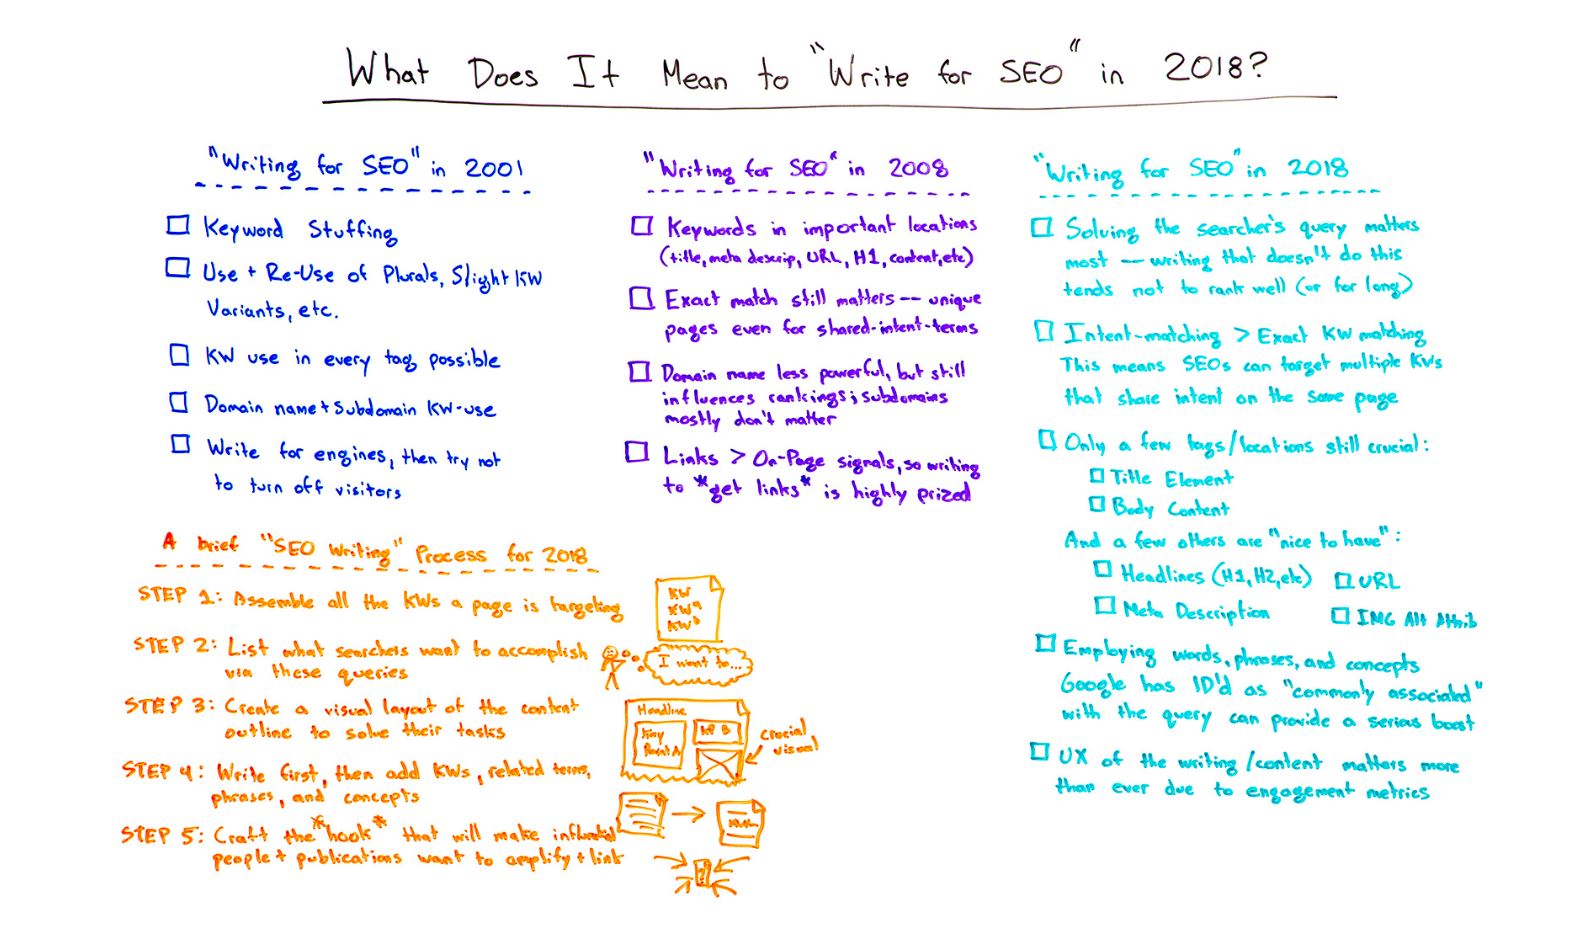 What Does It Mean to "Write for SEO" in 2018?
"Writing for SEO" in 2001
Keyword Stuffing
Use + Re-Use of Plurals, Slight KW
Variants, etc.
KW use in every tag possible
Domain name + Subdomain KW-use
Write for engines, then try not
to turn off visitors
"Writing for SEO" in 2008
Keywords in important locations
(title, meta descrip, URL, H1, content, etc)
Exact match still matters -- unique
pages even for shared-intent-terms
Domain name less powerful, but still
influences rankings; subdomains
mostly don't matter
Links > On-Page signals, so writing
to *get links* is highly prized
"Writing for SEO" in 2018
Solving the searcher's query matters
most -- writing that doesn't do this
tends not to rank well (or for long)
Intent-matching > Exact KW matching
This means SEOs can target multiple KWs
that share intent on the same page
Only a few tags/locations still crucial:
Title Element
Body Content
And a few others are "nice to have":
Headlines (H1, H2, etc) URL
Meta Description IMG Alt Attrib
Employing words, phrases, and concepts
Google has ID'd as "commonly associated"
with the query can provide a serious boost
UX of the writing/content matters more
than ever due to engagement metrics
A brief "SEO Writing" Process for 2018
STEP 1: Assemble all the KWs a page is targeting
KW
KWa
KWb
STEP 2: List what searchers want to accomplish
via these queries
I want to...
STEP 3: Create a visual layout of the content
outline to solve their tasks
Headline
Key
Point A
KP B
crucial
visual
STEP 4: Write first, then add KWs, related terms,
phrases, and concepts
STEP 5: Craft the *hook* that will make influential
people + publications want to amplify + link